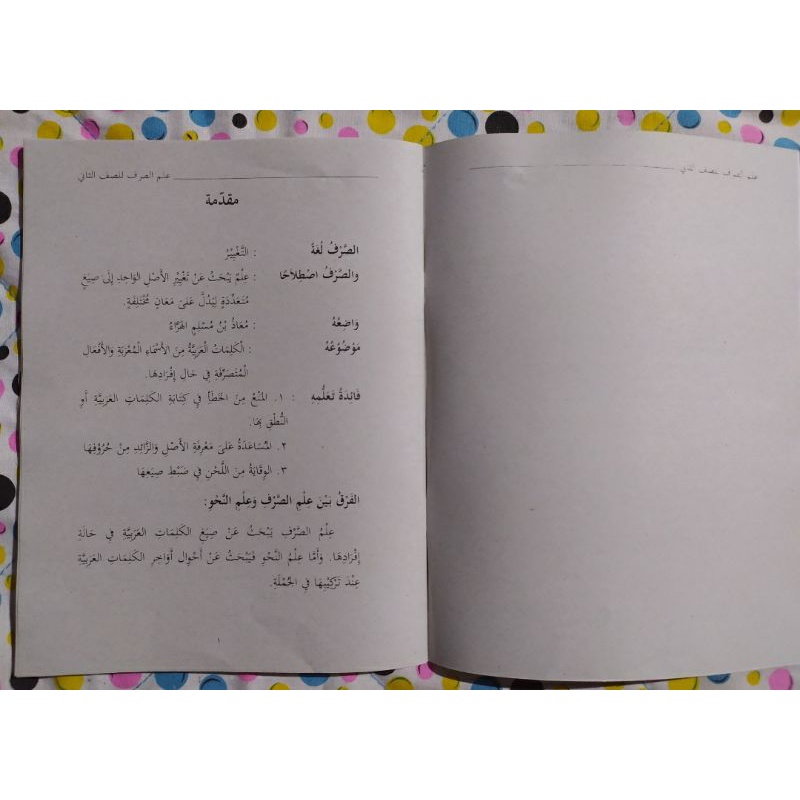 علم الصرف للصف الثاني
مقدّمة
الصَّرْفُ لُغَةً : التَّغْيِيْرُ
والصَّرْفُ اصْطِلاَحًا : عِلْمٌ يَبْحَثُ عَنْ تَغْيِيْرِ الأَصْلِ الوَاحِدِ إِلَى صِيَغٍ
مُتَعَدِّدَةٍ لِيَدُلَّ عَلىَ مَعَانٍ مُخْتَلِفَةٍ.
وَاضِعُهُ : مُعَاذُ بْنُ مُسْلِمٍ الهَرَّاءُ
مَوْضُوْعُهُ : الْكَلِمَاتُ الْعَرَبِيَّةُ مِنَ الأَسْمَاءِ الْمُعْرَبَةِ وَالأَفْعَالِ
الْمُتَصَرِّفَةِ فِي حَالِ إِفْرَادِهَا.
فَائِدَةُ تَعَلُّمِهِ : ١. المَنْعُ مِنَ الخَطَأِ فِي كِتَابَةِ الكَلِمَاتِ العَرَبِيَّةِ أَوِ
النُّطْقِ بِهَا.
٢. المُسَاعَدَةُ عَلىَ مَعْرِفَةِ الأَصْلِ وَالزَّائِدِ مِنْ حُرُوْفِهَا
٣. الوِقَايَةُ مِنَ اللَّحْنِ فِي ضَبْطِ صِيَغِهَا
الفَرْقُ بَيْنَ عِلْمِ الصَّرْفِ وَعِلْمِ النَّحْوِ:
عِلْمُ الصَّرْفِ يَبْحَثُ عَنْ صِيَغِ الكَلِمَاتِ العَرَبِيَّةِ فِي حَالَةِ
إِفْرَادِهَا. وَأَمَّا عِلْمُ النَّحْوِ فَيَبْحَثُ عَنْ أَحْوَالِ أَوَاخِرِ الكَلِمَاتِ العَرَبِيَّةِ
عِنْدَ تَرْكِيْبِهَا فِي الجُمْلَةِ.
١
علم الصرف للصف الثاني